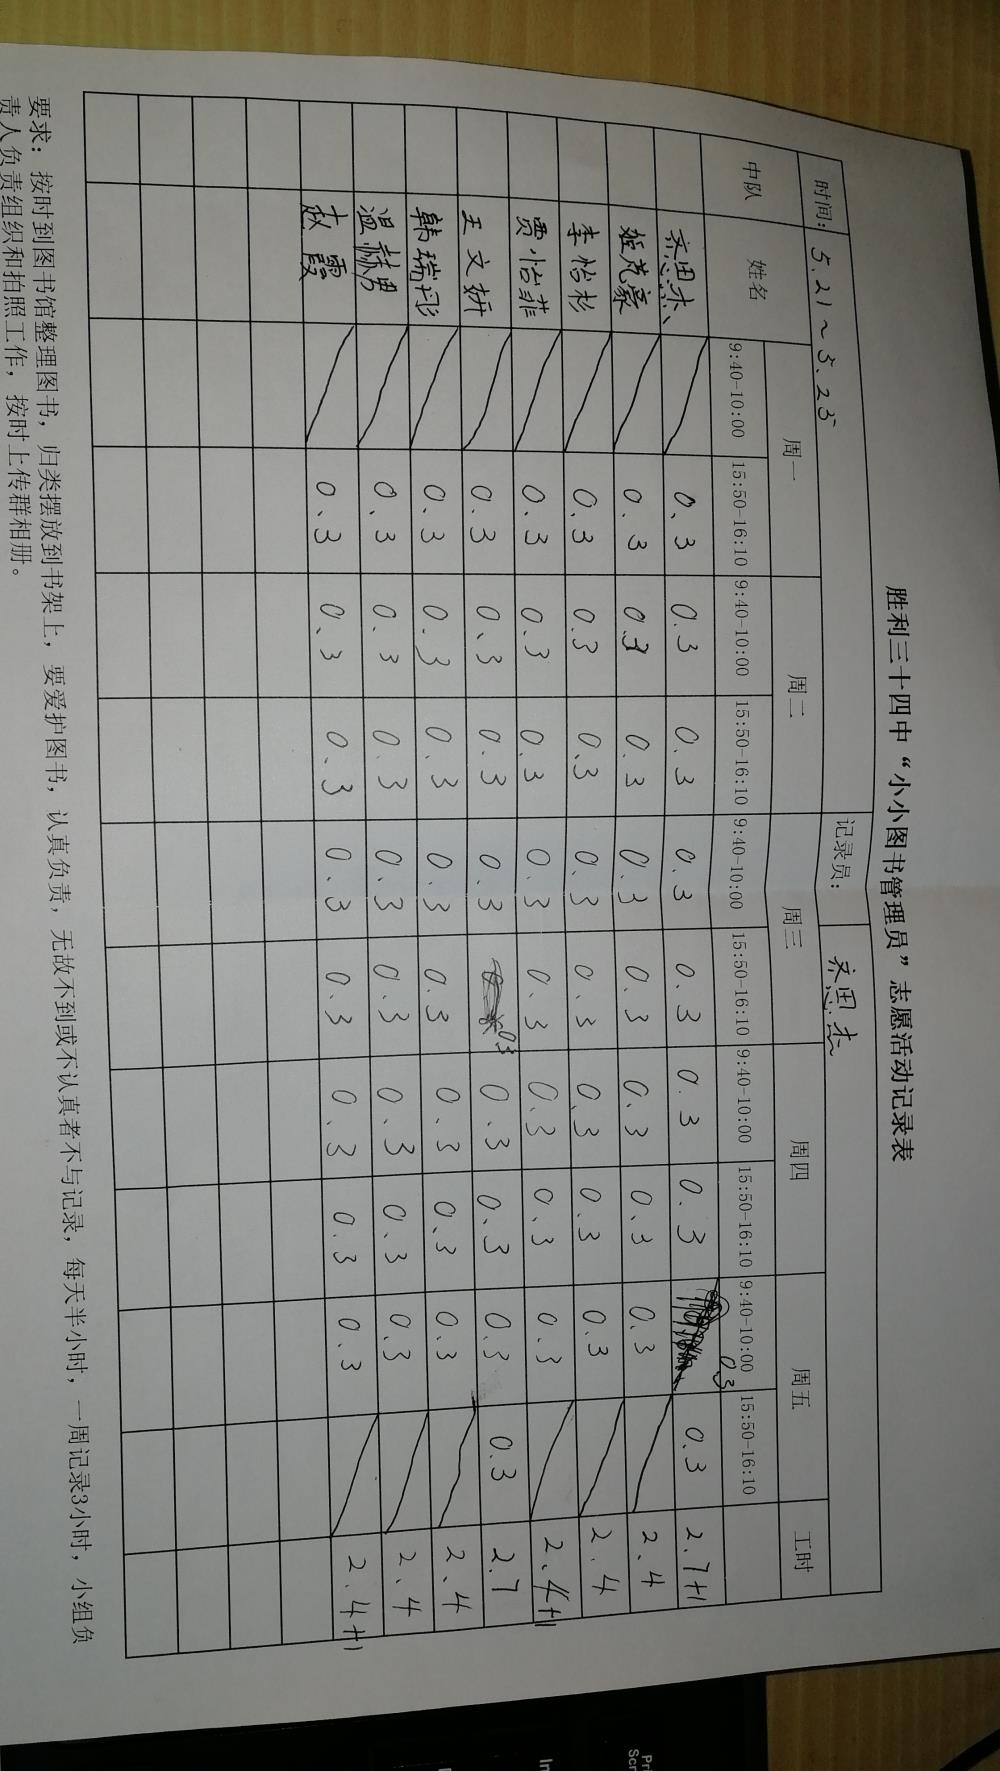 胜利三十四中“小小图书管理员”志愿活动记录表
时间: 5.21~5.25 记录员: 齐思杰
中队 姓名 周一 周二 周三 周四 周五 工时
9:40-10:00 15:50-16:10 9:40-10:00 15:50-16:10 9:40-10:00 15:50-16:10 9:40-10:00 15:50-16:10 9:40-10:00 15:50-16:10
齐思杰 0.3 0.3 0.3 0.3 0.3 0.3 0.3 0.3 0.3 2.7+1
0.3 0.3 0.3 0.3 0.3 0.3 0.3 0.3 2.4
李怡杉 0.3 0.3 0.3 0.3 0.3 0.3 0.3 0.3 2.4
贾怡菲 0.3 0.3 0.3 0.3 0.3 0.3 0.3 0.3 2.4+1
王文妍 0.3 0.3 0.3 0.3 0.3 0.3 0.3 0.3 0.3 2.7
韩瑞彤 0.3 0.3 0.3 0.3 0.3 0.3 0.3 0.3 2.4
温赫男 0.3 0.3 0.3 0.3 0.3 0.3 0.3 0.3 2.4
赵霞 0.3 0.3 0.3 0.3 0.3 0.3 0.3 0.3 2.4+1
要求: 按时到图书馆整理图书, 归类摆放到书架上, 要爱护图书, 认真负责, 无故不到或不认真者不与记录, 每天半小时, 一周记录3小时, 小组负
责人负责组织和拍照工作, 按时上传群相册。